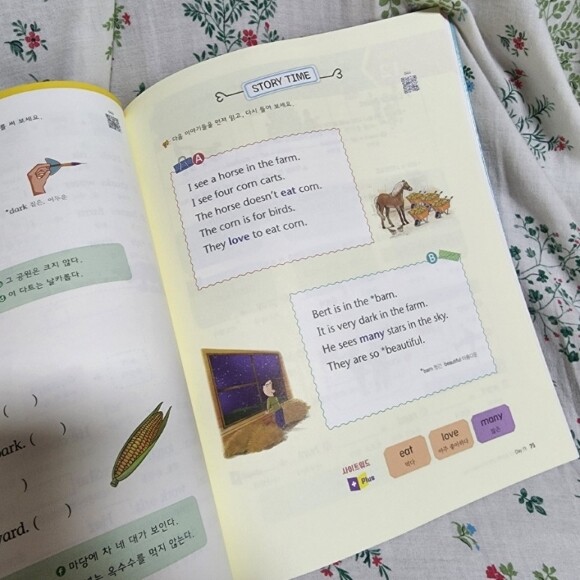 를 써 보세요.
*dark 짙은, 어두운
그 공원은 크지 않다.
이 다트는 날카롭다.
( )
park. ( )
( )
yard. ( )
마당에 차 네 대가 보인다.
옥수수를 먹지 않는다.
STORY TIME
다음 이야기들을 먼저 읽고, 다시 들어 보세요.
A
I see a horse in the farm.
I see four corn carts.
The horse doesn't eat corn.
The corn is for birds.
They love to eat corn.
B
Bert is in the *barn.
It is very dark in the farm.
He sees many stars in the sky.
They are so *beautiful.
*barn 헛간 beautiful 아름다운
사이트워드
+ Plus
eat
먹다
love
아주 좋아하다
many
많은
75